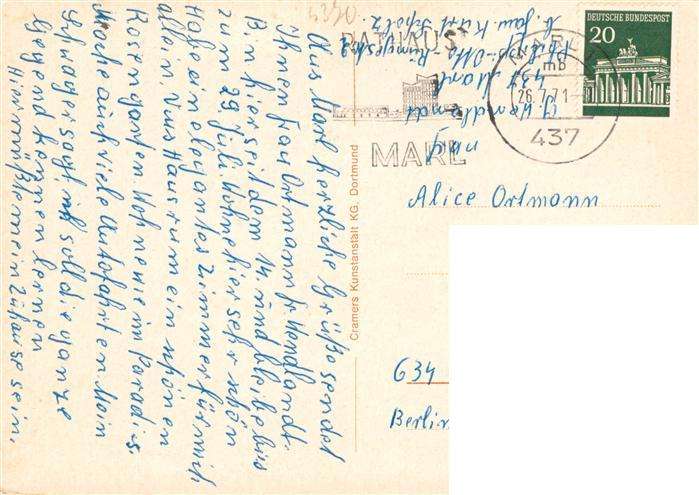 Aus Marl herzliche Grüße sendet
Ihnen Frau Ortmann Fr. Wendlandt.
Bin hier seit dem 14. und bleibe bis
zum 29. Juli. Wohne hier sehr schön
Habe ein elegantes Zimmer für mich
allein. Haus rum ein schönen
Rosengarten. Wohne wie im Paradis.
Mache auch viele Autofahrten. Mein
Schwager sagt ich soll die ganze
Gegend kennen lernen
Hier müßte mein Zuhause sein.
Cramers Kunstanstalt KG. Dortmund
RATHAUS
MARL
mb
26.7.71
437
DEUTSCHE BUNDESPOST
20
Wendlandt
437 Marl
Philipp-Otto-
b. Fam. Kurt Scholz
Alice Ortmann
634
Berlin